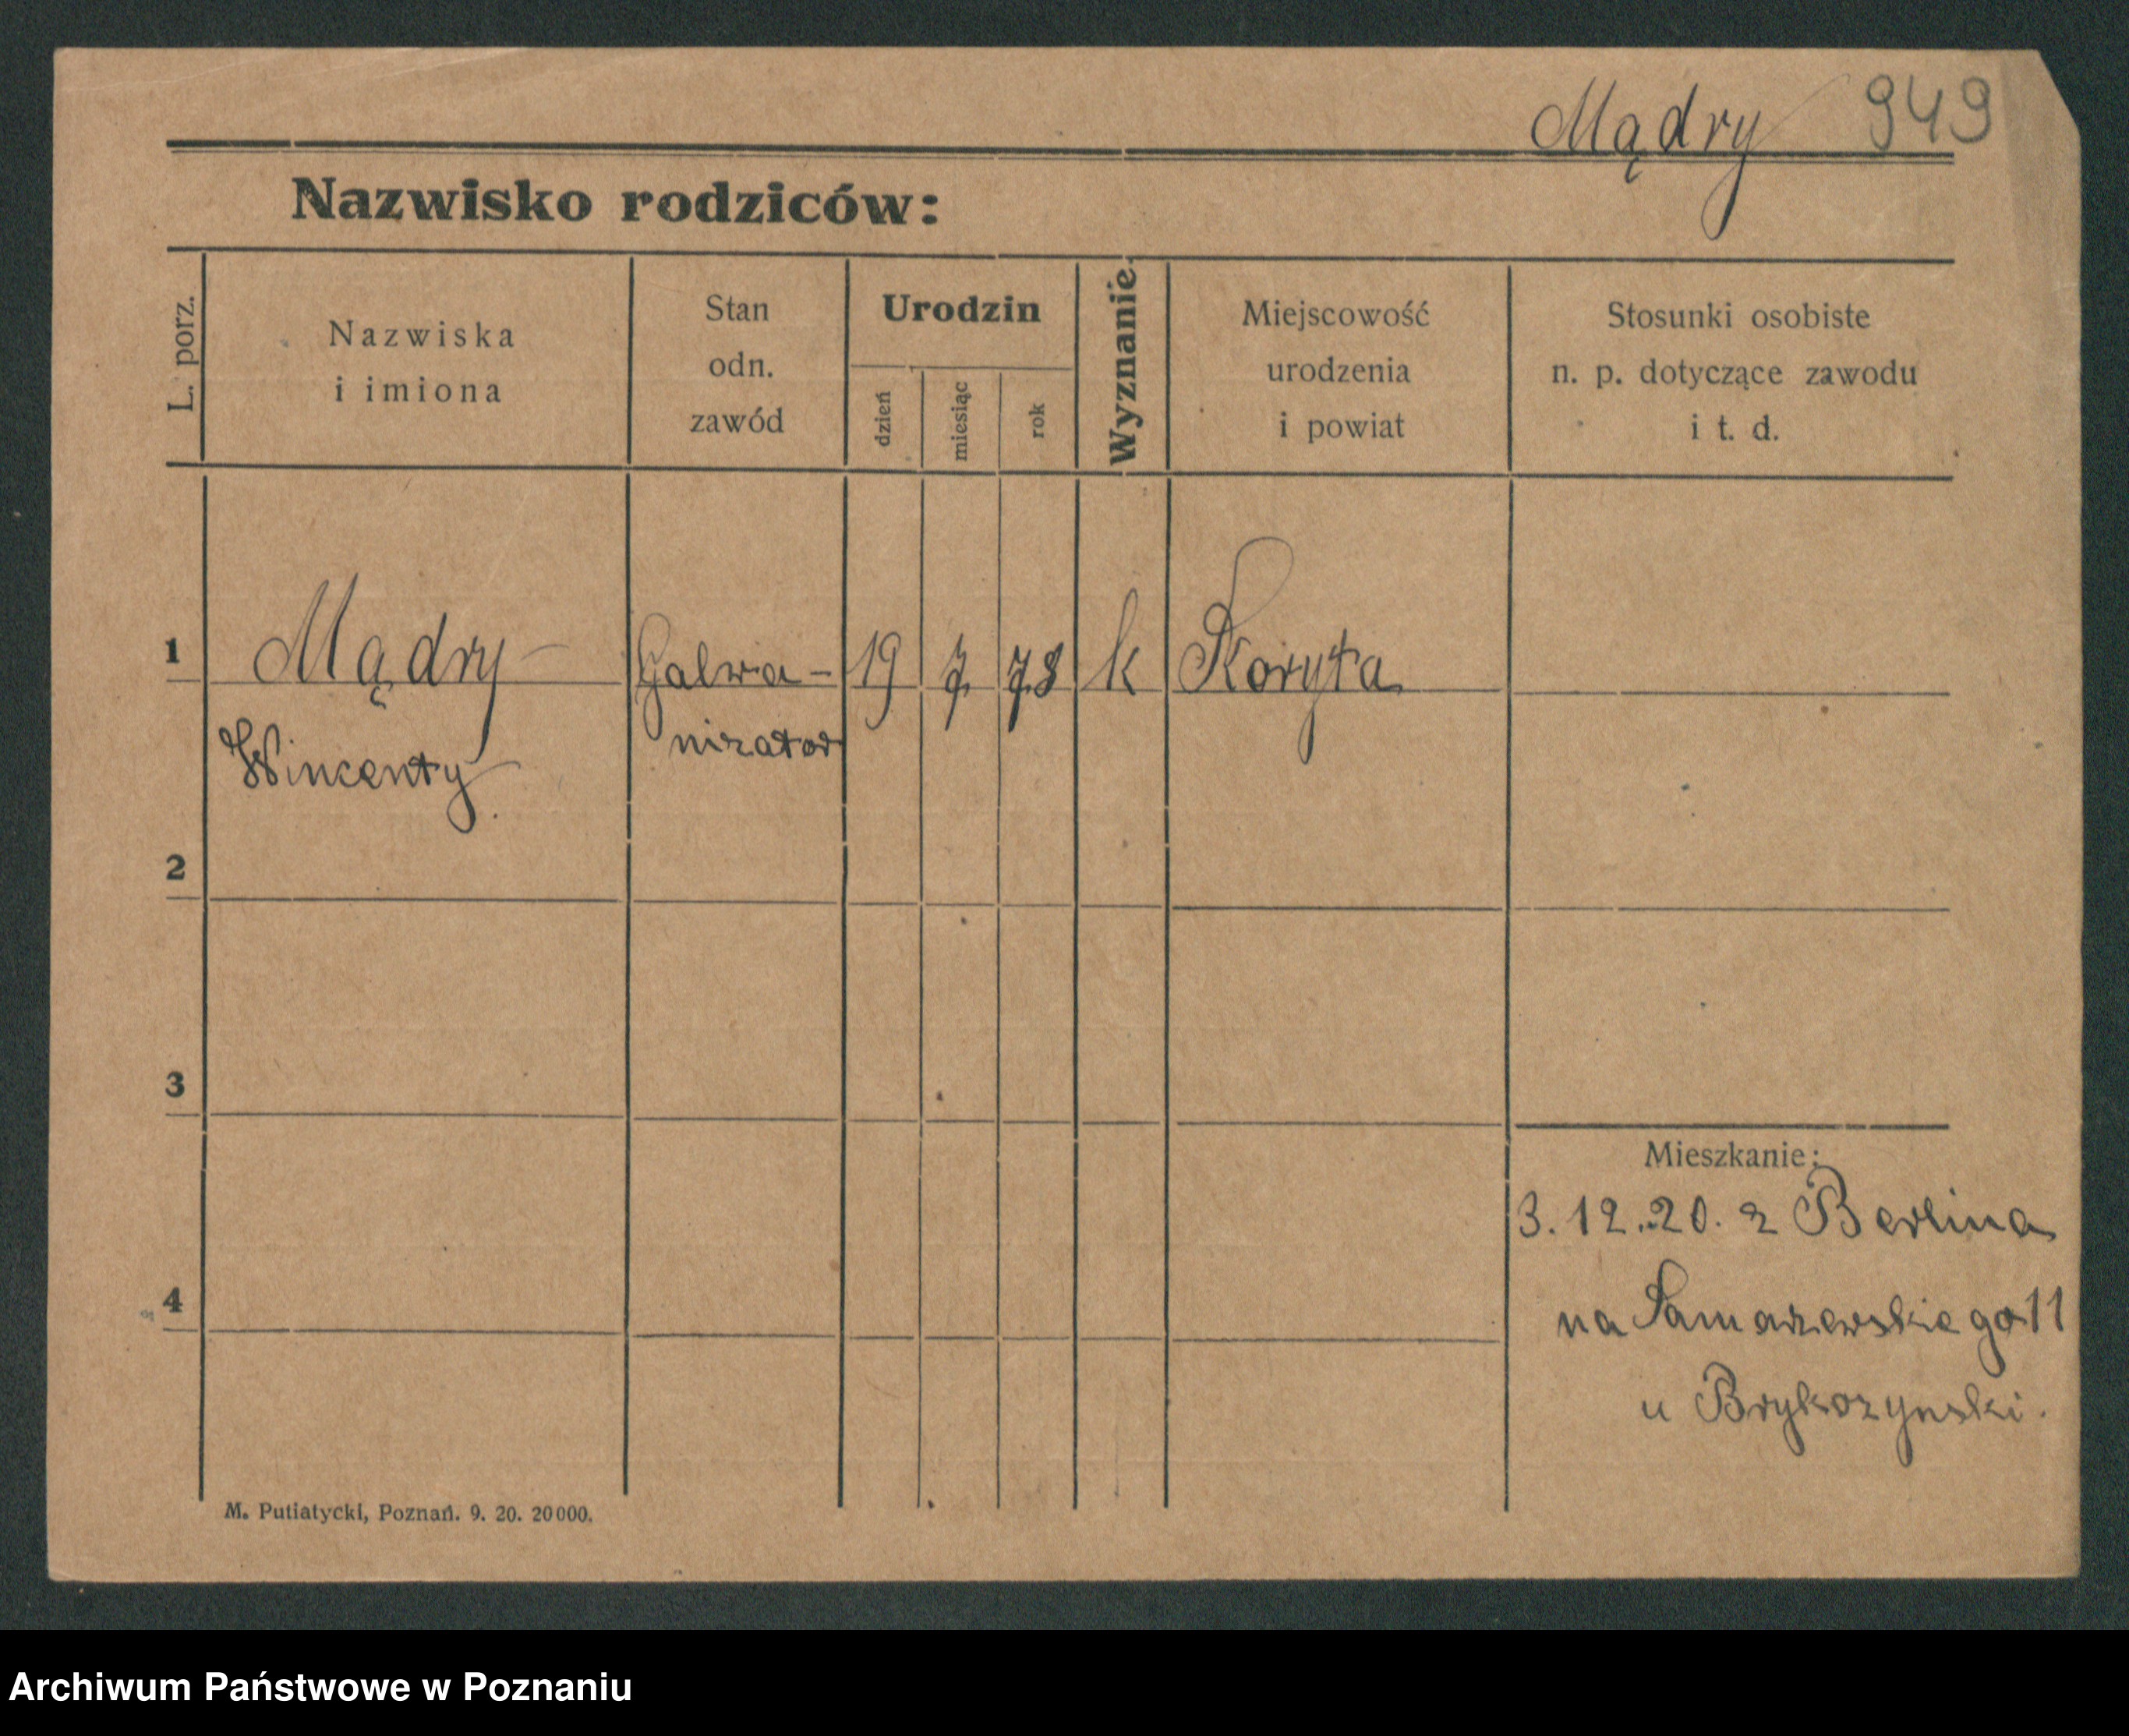 Mądry 949
Nazwisko rodziców:
L. porz.
Nazwiska
i imiona
Stan
odn.
zawód
Urodzin
dzień
miesiąc
rok
Wyznanie.
Miejscowość
urodzenia
i powiat
Stosunki osobiste
n. p. dotyczące zawodu
i t. d.
1 Mądry Galwa- 19 7. 78 k Koryta
Wincenty nizator
2
3
Mieszkanie:
3.12.20. z Berlina
4
na Samarzewskiego 11
u
M. Putiatycki, Poznań. 9. 20. 20000.
Archiwum Państwowe w Poznaniu